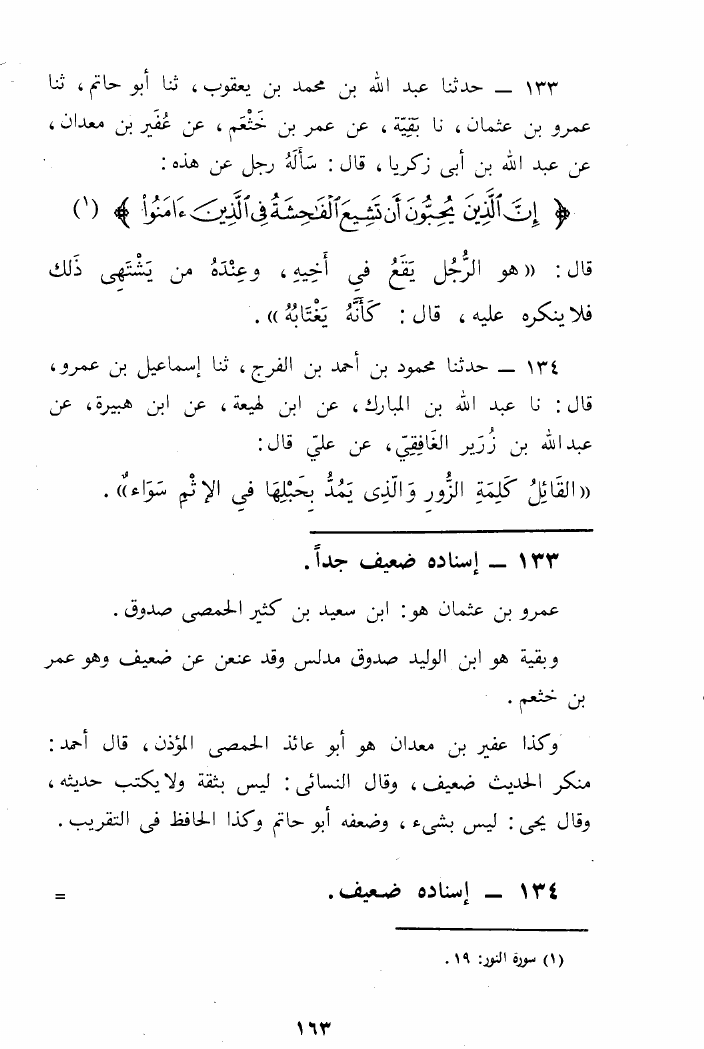 ١٣٣ – حدثنا عبد الله بن محمد بن يعقوب، ثنا أبو حاتم، ثنا
عمرو بن عثمان، نا بَقِيّة، عن عمر بن خَثْعَم، عن عُفَير بن معدان،
عن عبد الله بن أبى زكريا، قال: سَأَلَهُ رجل عن هذه:
﴿ إِنَّ ٱلَّذِينَ يُحِبُّونَ أَن تَشِيعَ ٱلْفَٰحِشَةُ فِى ٱلَّذِينَ ءَامَنُواْ ﴾ (١)
قال: «هو الرَّجُل يَقَعُ في أَخِيهِ، وعِنْدَهُ من يَشْتَهِى ذَلك
فلا ينكره عليه، قال: كَأَنَّهُ يَغْتَابُهُ».
١٣٤ – حدثنا محمود بن أحمد بن الفرج، ثنا إسماعيل بن عمرو،
قال: نا عبد الله بن المبارك، عن ابن لهيعة، عن ابن هبيرة، عن
عبدالله بن زُرَير الغَافِقِيّ، عن عليّ قال:
«القَائِلُ كَلِمَةِ الزُّورِ وَالَّذِى يَمُدُّ بِحَبْلِهَا في الإثْمِ سَوَاءٌ».
١٣٣ – إسناده ضعيف جداً.
عمرو بن عثمان هو: ابن سعيد بن كثير الحمصى صدوق.
وبقية هو ابن الوليد صدوق مدلس وقد عنعن عن ضعيف وهو عمر
بن خثعم.
وكذا عفير بن معدان هو أبو عائذ الحمصى المؤذن، قال أحمد:
منكر الحديث ضعيف، وقال النسائى: ليس بثقة ولا يكتب حديثه،
وقال يحى: ليس بشىء، وضعفه أبو حاتم وكذا الحافظ فى التقريب.
١٣٤ – إسناده ضعيف. =
(١) سورة النور: ١٩.
١٦٣